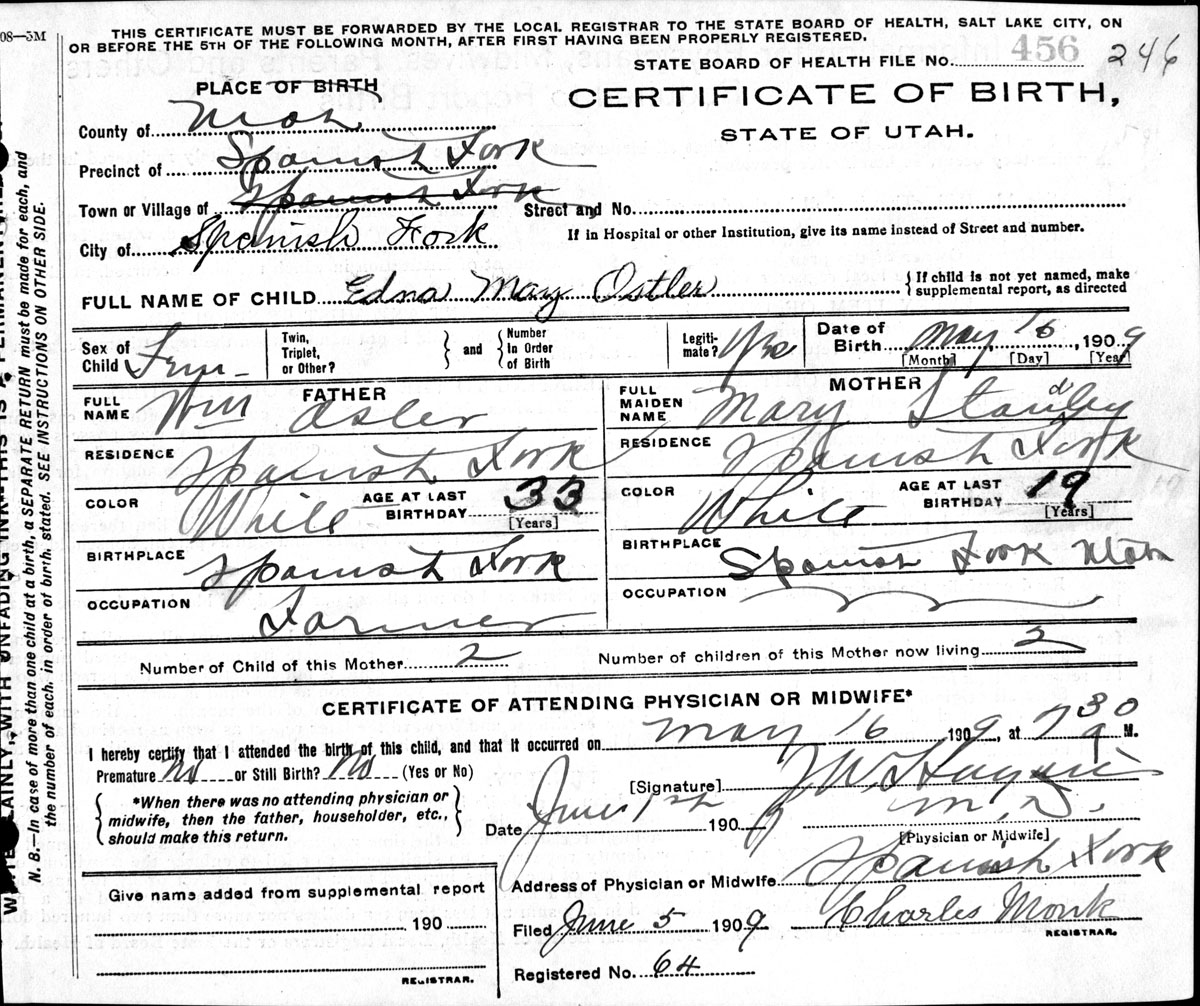 08—3M
THIS CERTIFICATE MUST BE FORWARDED BY THE LOCAL REGISTRAR TO THE STATE BOARD OF HEALTH, SALT LAKE CITY, ON
OR BEFORE THE 5TH OF THE FOLLOWING MONTH, AFTER FIRST HAVING BEEN PROPERLY REGISTERED.
STATE BOARD OF HEALTH FILE No. 456 246
PLACE OF BIRTH
CERTIFICATE OF BIRTH,
STATE OF UTAH.
County of Utah
Precinct of Spanish Fork
Town or Village of Spanish Fork
Street and No.
City of Spanish Fork
If in Hospital or other Institution, give its name instead of Street and number.
FULL NAME OF CHILD Edna Mary Ostler {If child is not yet named, make supplemental report, as directed
Sex of Child Fem- Twin, Triplet, or Other? } and { Number In Order of Birth Legiti-mate? Yes Date of Birth May 16, 1909
[Month] [Day] [Year]
FATHER
FULL NAME Wm Osler
RESIDENCE Spanish Fork
COLOR White AGE AT LAST BIRTHDAY 33 [Years]
BIRTHPLACE Spanish Fork
OCCUPATION Farmer
MOTHER
FULL MAIDEN NAME Mary Standley
RESIDENCE Spanish Fork
COLOR White AGE AT LAST BIRTHDAY 19 [Years]
BIRTHPLACE Spanish Fork Utah
OCCUPATION
Number of Child of this Mother 2 Number of children of this Mother now living 2
CERTIFICATE OF ATTENDING PHYSICIAN OR MIDWIFE*
I hereby certify that I attended the birth of this child, and that it occurred on May 16 1909, at 7 30 a M.
Premature No or Still Birth? No (Yes or No)
{ *When there was no attending physician or
midwife, then the father, householder, etc.,
should make this return. }
[Signature] M.D.
Date June 1st 1909
[Physician or Midwife]
Address of Physician or Midwife Spanish Fork
Give name added from supplemental report
190
REGISTRAR.
Filed June 5 1909 Charles Monk
REGISTRAR.
Registered No. 64
N. B.—In case of more than one child at a birth, a SEPARATE RETURN must be made for each, and
the number of each, in order of birth, stated. SEE INSTRUCTIONS ON OTHER SIDE.
PLAINLY, WITH UNFADING INK—THIS IS A PERMANENT